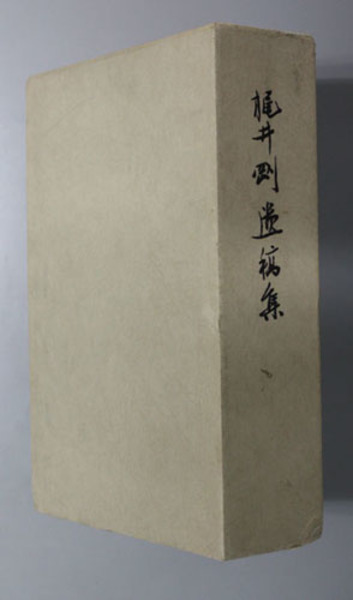 梶井剛遺稿集